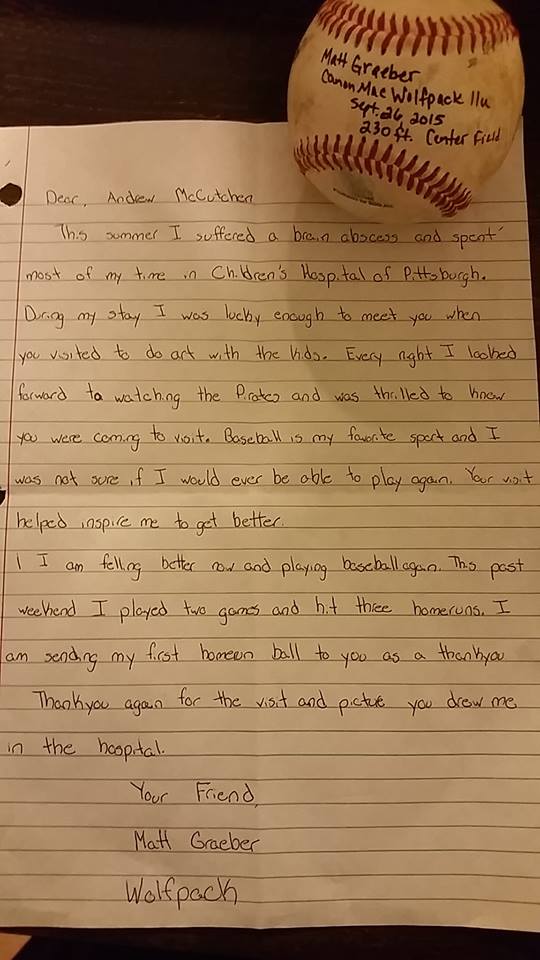 Matt Graeber
Canon Mac Wolfpack 11u
Sept. 26 2015
230 ft. Center Field
Dear, Andrew McCutchen
This summer I suffered a brain abscess and spent
most of my time in Children's Hospital of Pittsburgh.
During my stay I was lucky enough to meet you when
you visited to do art with the kids. Every night I looked
forward to watching the Pirates and was thrilled to know
you were coming to visit. Baseball is my favorite sport and I
was not sure if I would ever be able to play again. Your visit
helped inspire me to get better.
I I am felling better now and playing baseball again. This past
weekend I played two games and hit three homeruns. I
am sending my first homerun ball to you as a thankyou
Thankyou again for the visit and pictue you drew me
in the hospital.
Your Friend,
Matt Graeber
Wolfpack